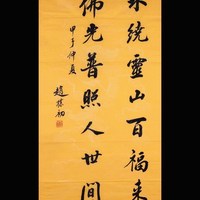 水绕靈山百福来
佛光普照人世间
甲子仲夏
趙樸初